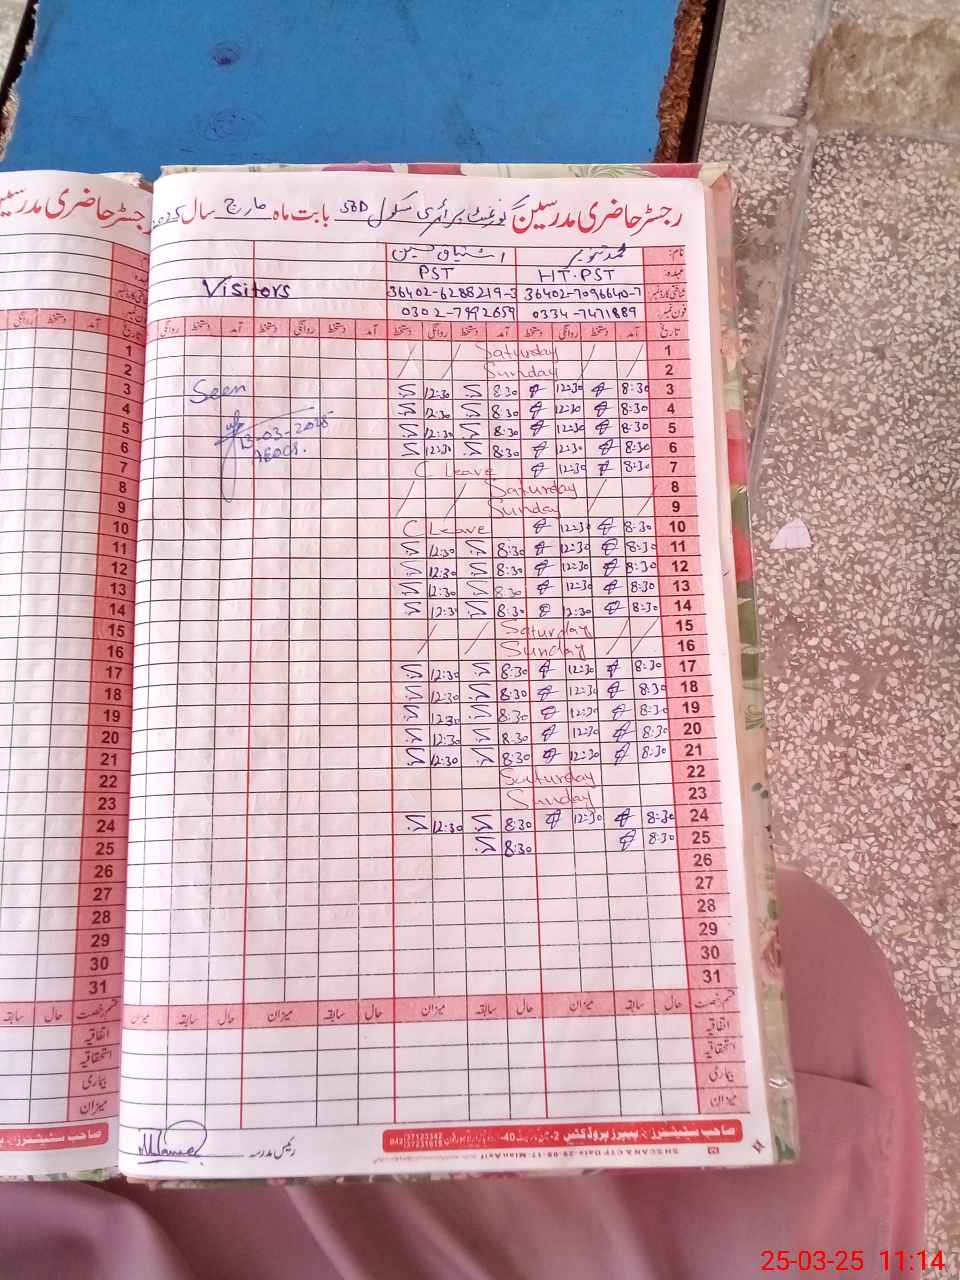 رجسٹر حاضری مدرسین گورنمنٹ پرائمری سکول SBD بابت ماہ مارچ سال 2025
نام: محمد تنویر اشتیاق حسین
عہدہ: HT.PST PST
شناختی کارڈ نمبر 36402-7096640-7 36402-6288219-3 Visitors
فون نمبر: 0334-7471889 0302-7992659
تاریخ آمد دستخط روانگی دستخط آمد دستخط روانگی دستخط آمد دستخط روانگی دستخط آمد دستخط روانگی
1 Saturday
2 Sunday
3 8:30 12:30 8:30 12:30 Seen
4 8:30 12:30 8:30 12:30
5 8:30 12:30 8:30 12:30 13-03-2025
6 8:30 12:30 8:30 12:30
7 8:30 12:30 C Leave
8 Saturday
9 Sunday
10 8:30 12:30 C Leave
11 8:30 12:30 8:30 12:30
12 8:30 12:30 8:30 12:30
13 8:30 12:30 8:30 12:30
14 8:30 12:30 8:30 12:30
15 Saturday
16 Sunday
17 8:30 12:30 8:30 12:30
18 8:30 12:30 8:30 12:30
19 8:30 12:30 8:30 12:30
20 8:30 12:30 8:30 12:30
21 8:30 12:30 8:30 12:30
22 Saturday
23 Sunday
24 8:30 12:30 8:30 12:30
25 8:30 8:30
26
27
28
29
30
31
قسم رخصت حال سابقہ میزان حال سابقہ میزان حال سابقہ میزان حال سابقہ میزان
اتفاقیہ
استحقاقیہ
بیماری
میزان
رئیس مدرسہ
صاحب سٹیشنرز اینڈ پیپرز پروڈکٹس
042 37123342 37231619
25-03-25 11:14